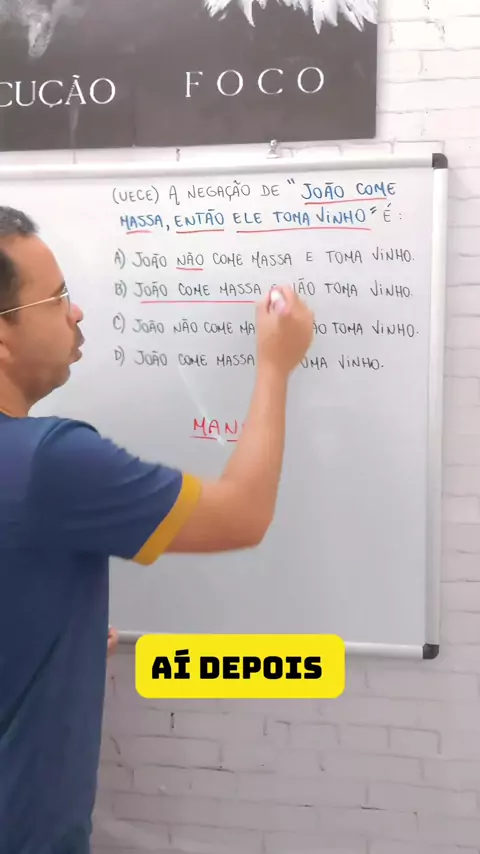 CUÇÃO FOCO
(UECE) A NEGAÇÃO DE "JOÃO COME
MASSA, ENTÃO ELE TOMA VINHO" É:
A) JOÃO NÃO COME MASSA E TOMA VINHO.
B) JOÃO COME MASSA E NÃO TOMA VINHO.
C) JOÃO NÃO COME MA ÃO TOMA VINHO.
D) JOÃO COME MASSA OMA VINHO.
MAN
AÍ DEPOIS